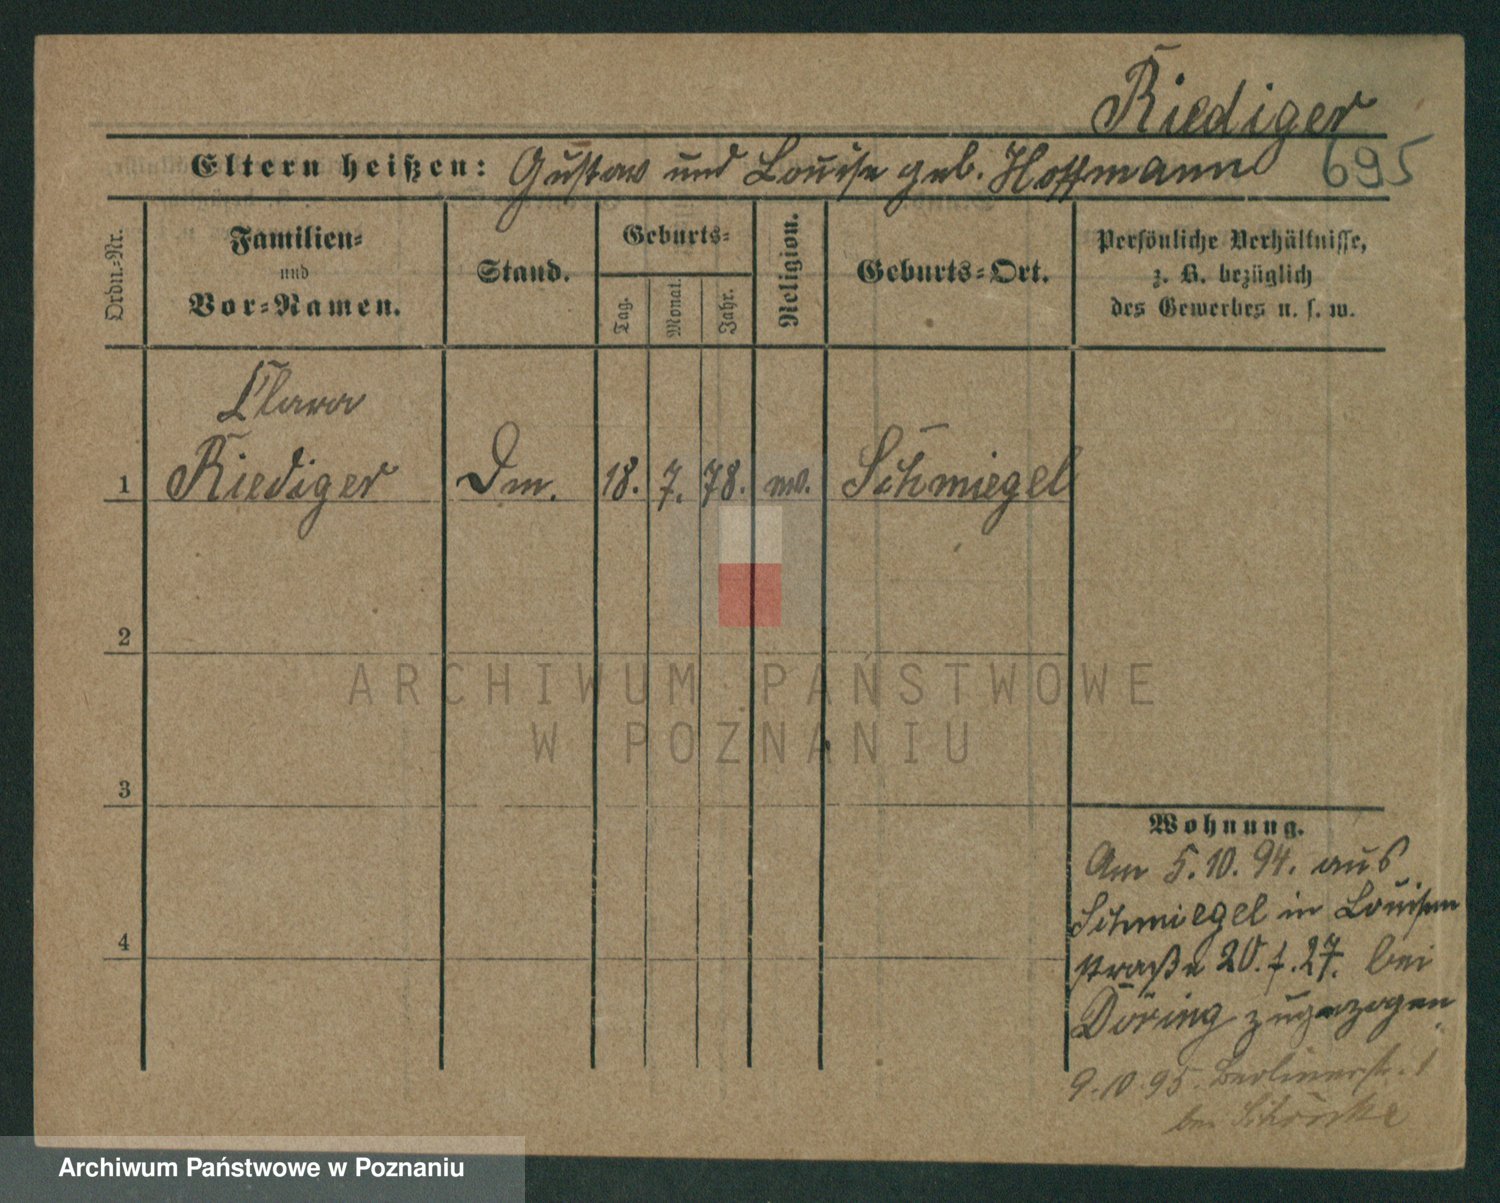 Riediger
Eltern heißen: Gustav und Louise geb. Hoffmann
695
Ordn.-Nr.
Familien-
und
Vor-Namen.
Stand.
Geburts-
Tag.
Monat.
Jahr.
Religion.
Geburts-Ort.
Persönliche Verhältnisse,
z. B. bezüglich
des Gewerbes u. s. w.
Clara
1 Riediger Dm. 18. 7. 78. ev. Schmiegel
2
3
4
Wohnung.
Am 5.10.94. aus
Schmiegel in Louisen
straße 20. f. 27. bei
Döring zugezogen
9.10.95. Berlinerstr. 1
bei
ARCHIWUM PAŃSTWOWE
W POZNANIU
Archiwum Państwowe w Poznaniu